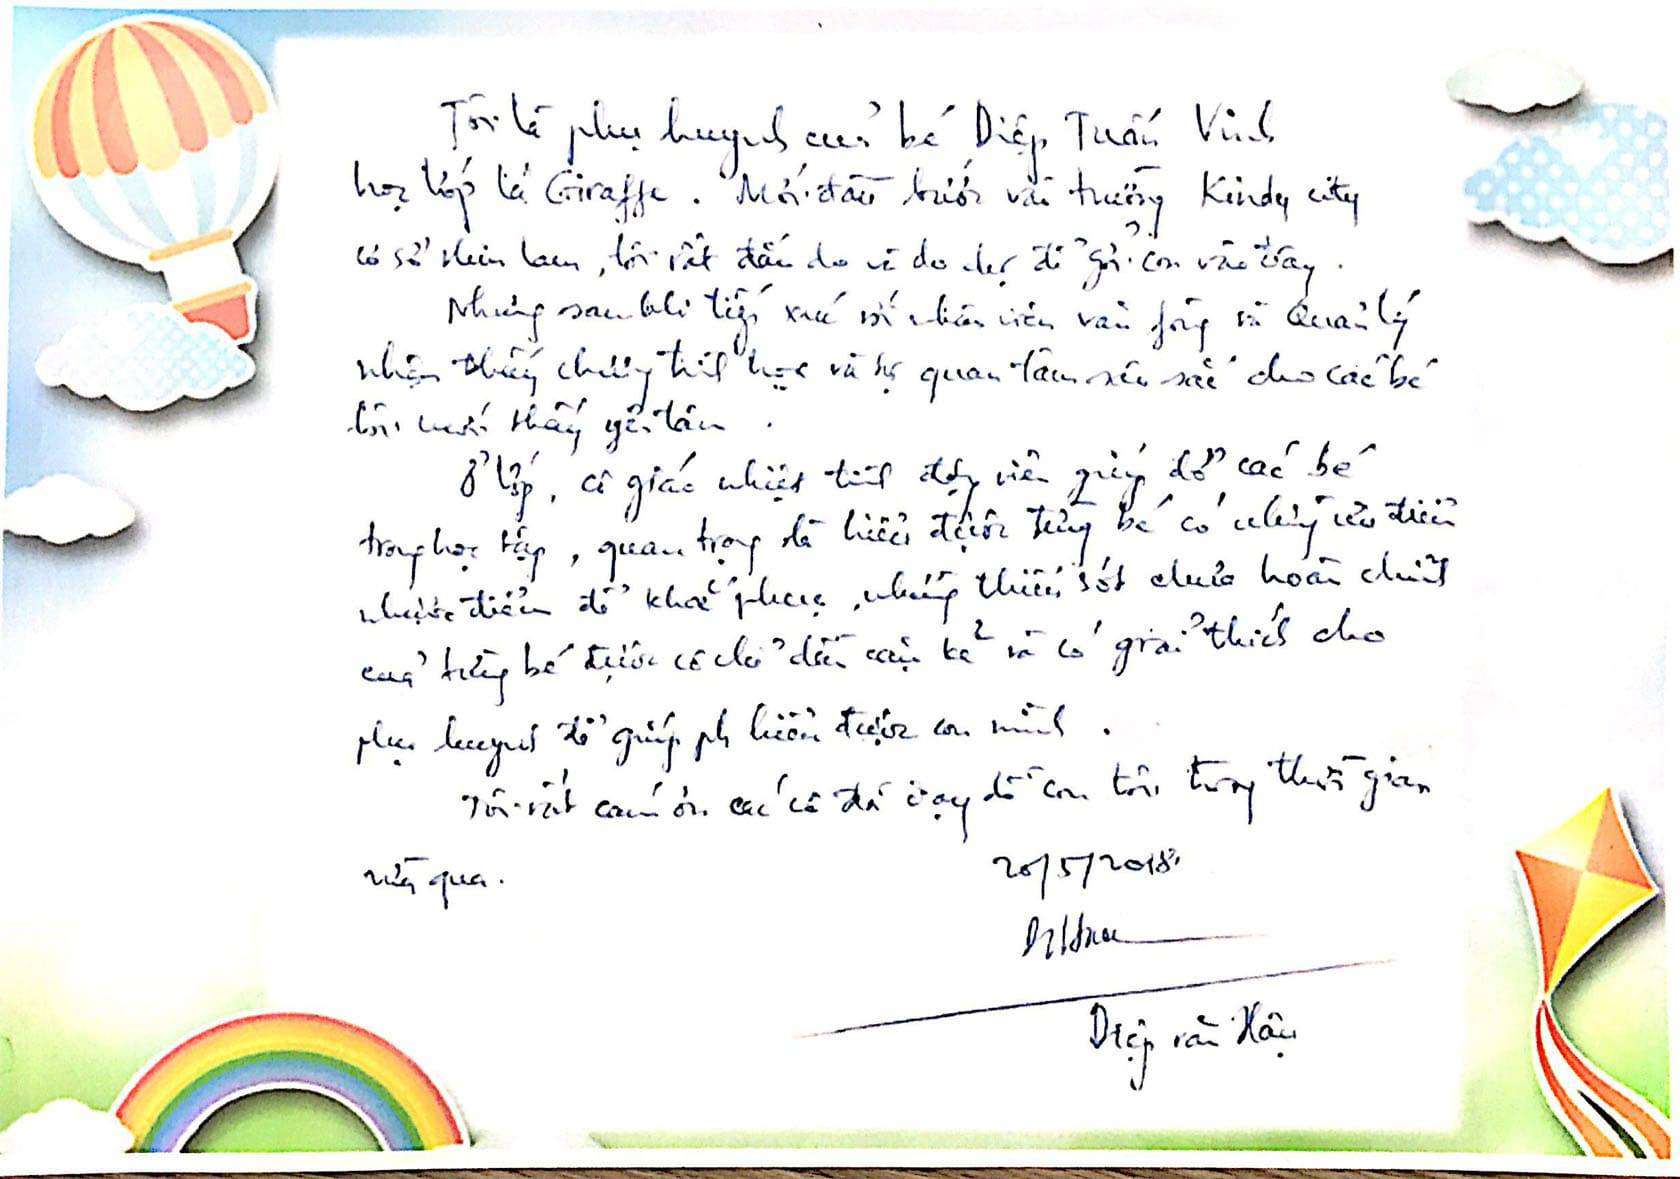 Tôi là phụ huynh của bé Diệp Tuấn Vinh
học lớp lá Giraffe. Mới đầu bước vào trường Kindy city
cơ sở Him Lam, tôi rất đắn đo và do dự để gởi con vào đây.
Nhưng sau khi tiếp xúc với nhân viên văn fòng và Quản lý
nhận thấy chương trình học và sự quan tâm sâu sắc cho các bé
tôi mới thấy yên tâm.
Ở lớp, cô giáo nhiệt tình động viên giúp đỡ các bé
trong học tập, quan trọng là hiểu được từng bé có những ưu điểm
nhược điểm để khắc phục, những thiếu sót chưa hoàn chỉnh
của từng bé được cô chỉ dẫn cặn kẽ và có giải thích cho
phụ huynh để giúp ph hiểu được con mình.
Tôi rất cám ơn các cô đã dạy dỗ con tôi trong thời gian
vừa qua.
20/5/2018
Diệp Văn Hậu